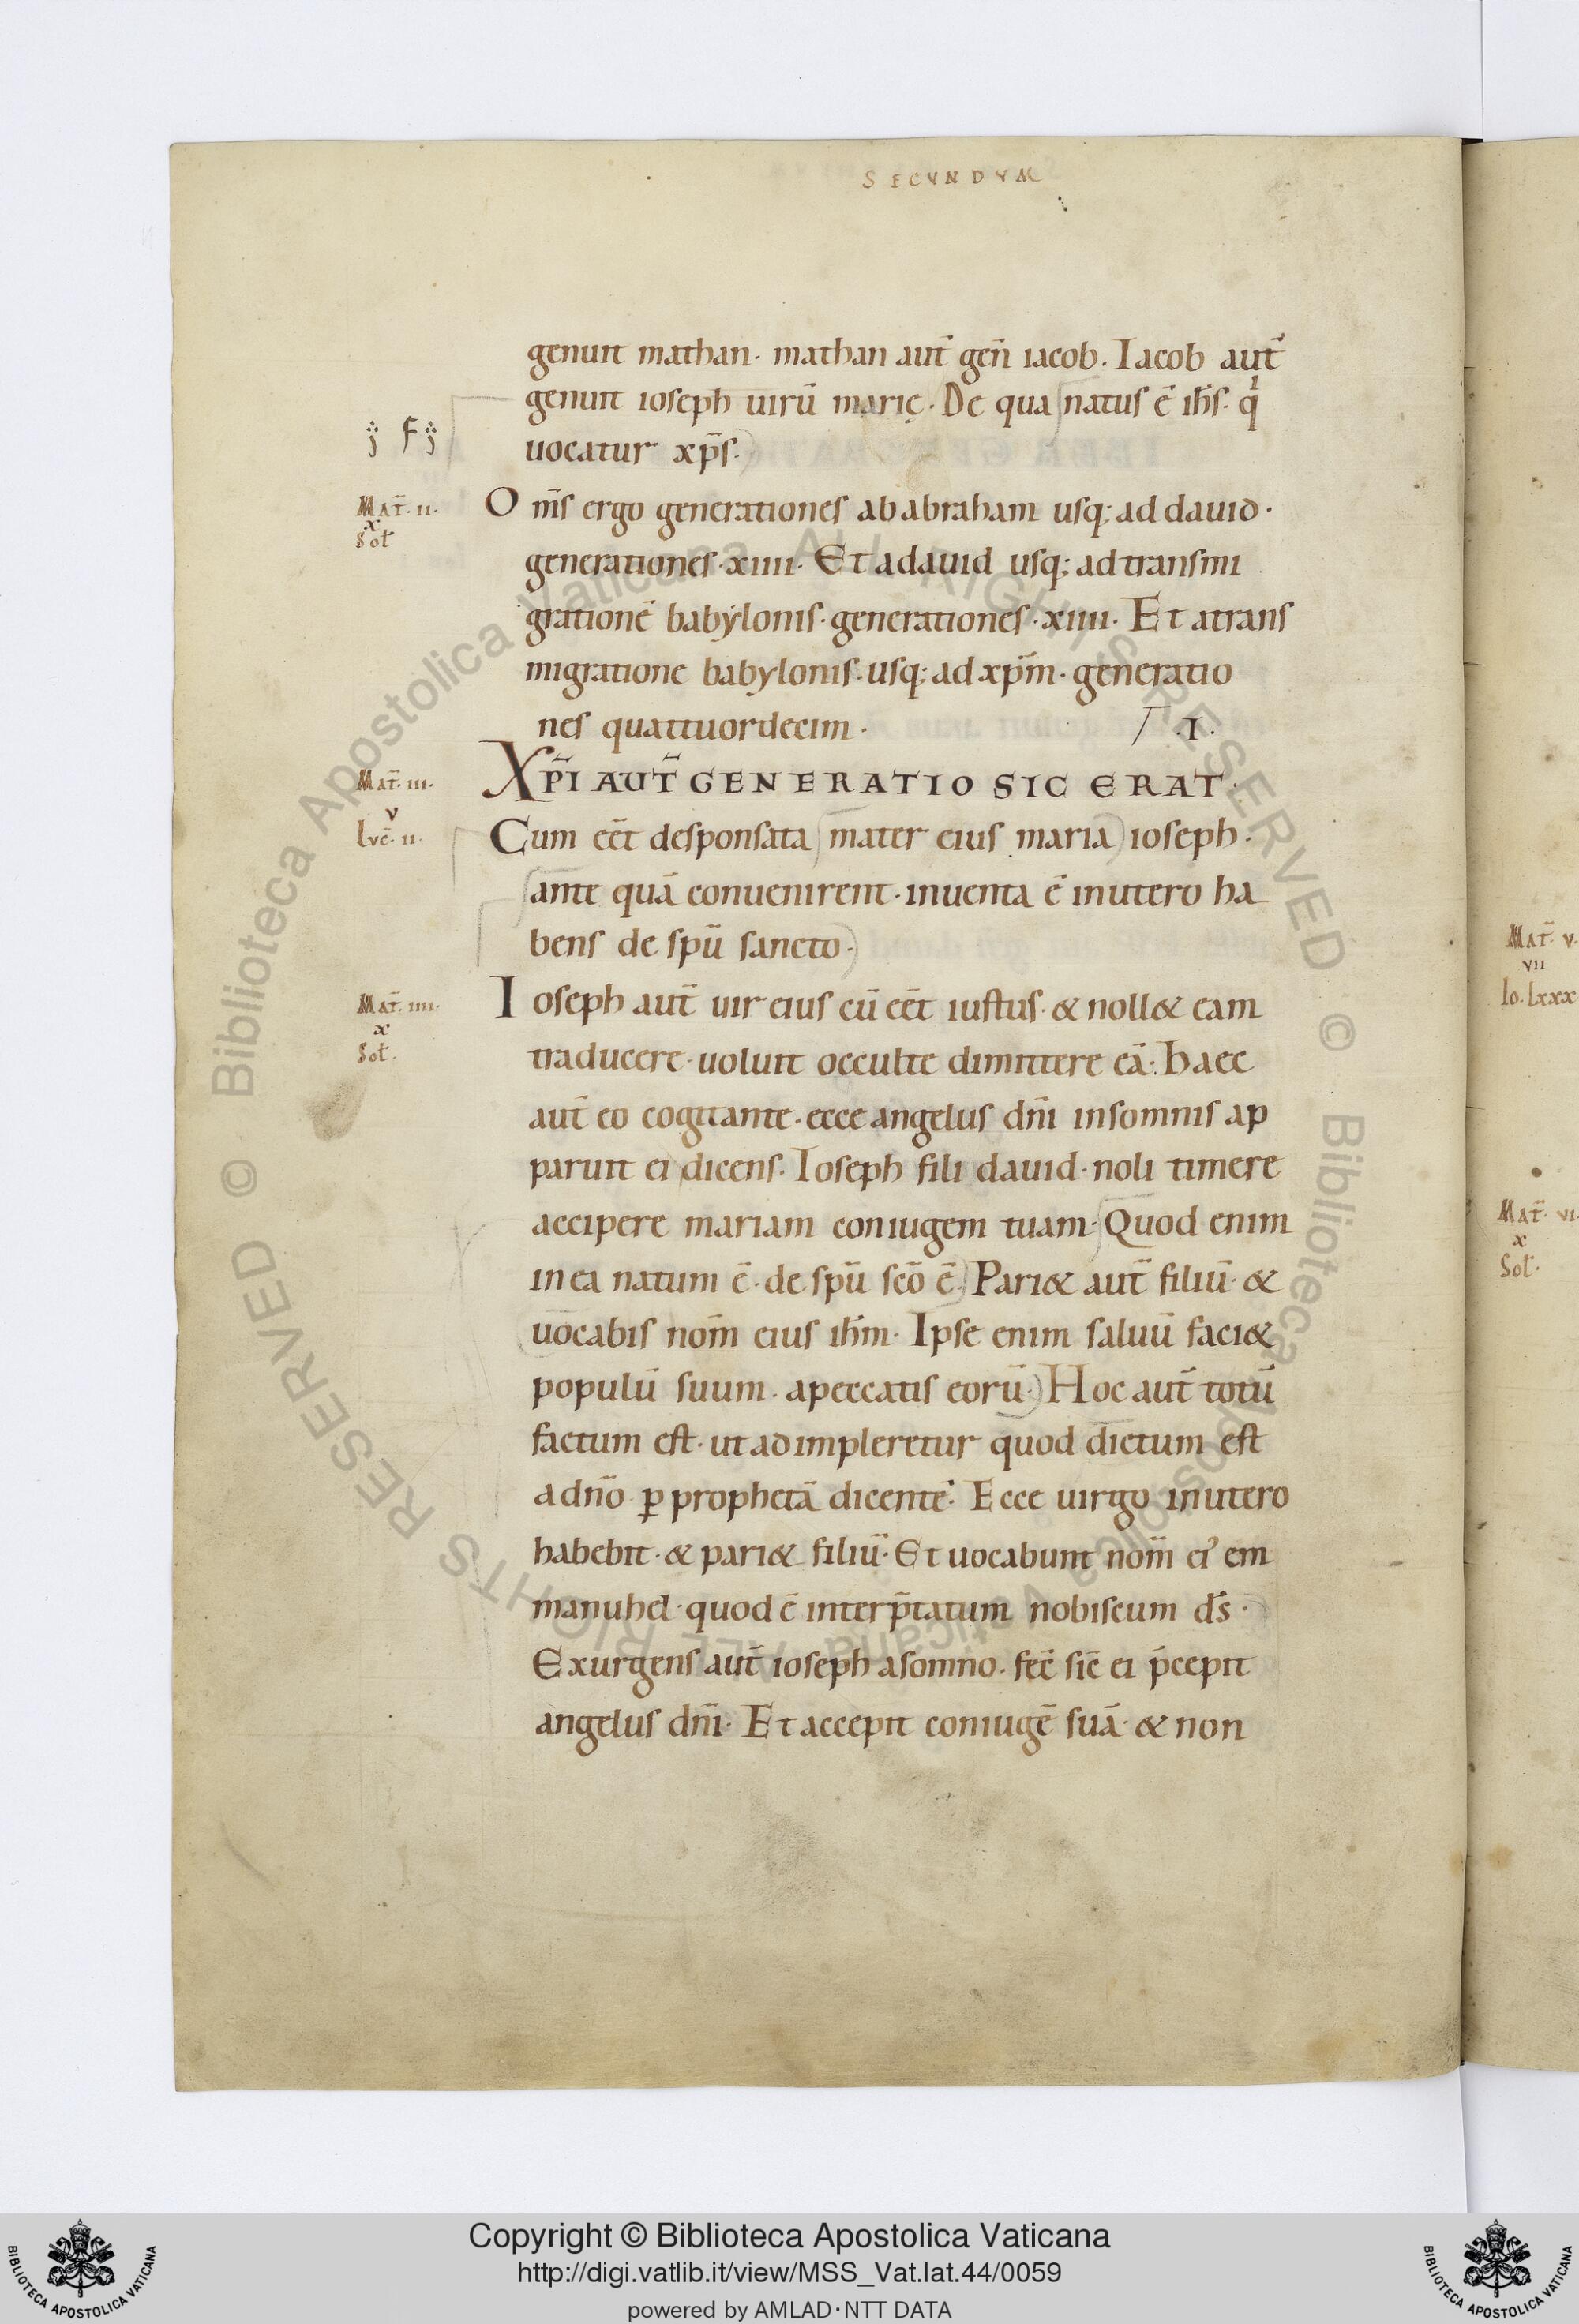 SECVNDVM
genuit mathan. mathan aut̄ gen̄ iacob. Iacob aut̄
genuit ioseph uirū marię. De qua natus ē ih̄s. qⁱ
uocatur xp̄s.
Mat̄. ii.
x
Sol
Om̄s ergo generationes ab abraham usq; ad dauid.
generationes. xiiii. Et a dauid usq; ad transmi
grationē babylonis. generationes. xiiii. Et a trans
migratione babylonis. usq; ad xp̄m. generatio
nes quattuordecim. .I.
Mat̄. iii.
v
Luc̄. ii.
XP̄I AUT̄ GENERATIO SIC ERAT.
Cum eēt desponsata mater eius maria ioseph.
ante quā conuenirent. inuenta ē in utero ha
bens de spū sancto.
Mat̄. iiii.
x
Sol.
Ioseph aut̄ uir eius cū eēt iustus. & noll& eam
traducere. uoluit occulte dimittere eā. Haec
aut̄ eo cogitante. ecce angelus dn̄i in somnis ap
paruit ei dicens. Ioseph fili dauid. noli timere
accipere mariam coniugem tuam. Quod enim
in ea natum ē. de spū scō ē. Pari& aut̄ filiū. &
uocabis nom̄ eius ih̄m. Ipse enim saluū faci&
populū suum. a peccatis eorū. Hoc aut̄ totū
factum est. ut adimpleretur quod dictum est
a dn̄o ꝑ prophetā dicentē. Ecce uirgo in utero
habebit. & pari& filiū. Et uocabunt nom̄ ei᾽ em
manuhel. quod ē interp̄tatum nobiscum d̄s.
Exurgens aut̄ ioseph a somno. fec̄ sic̄ ei p̄cepit
angelus dn̄i. Et accepit coniugē suā. & non
Mat̄. v.
vii
Io. lxxx
Mat̄. vi
x
Sol.
© Biblioteca Apostolica Vaticana ALL RIGHTS RESERVED © Biblioteca Apostolica Vaticana ALL RIGHTS RESERVED
Copyright © Biblioteca Apostolica Vaticana
http://digi.vatlib.it/view/MSS_Vat.lat.44/0059
powered by AMLAD·NTT DATA
BIBLIOTECA APOSTOLICA VATICANA
BIBLIOTECA APOSTOLICA VATICANA